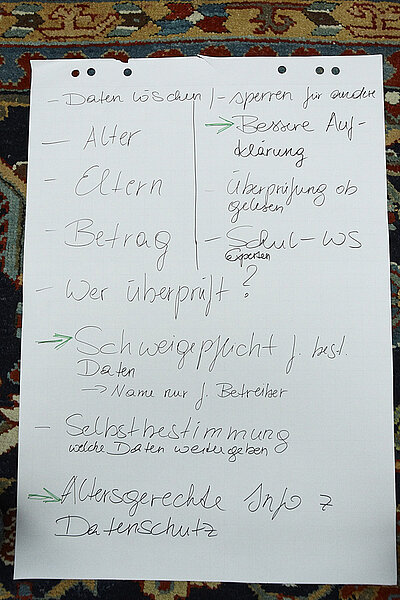 - Daten löschen / - sperren für andere
- Alter
- Eltern
- Betrag
→ Bessere Auf-
klärung
- Überprüfung ob
gelesen
- Schul-WS
Experten
- Wer überprüft ?
→ Schweigepflicht f. best.
Daten
→ Name nur f. Betreiber
- Selbstbestimmung
welche Daten weitergeben
→ Altersgerechte Info z
Datenschutz